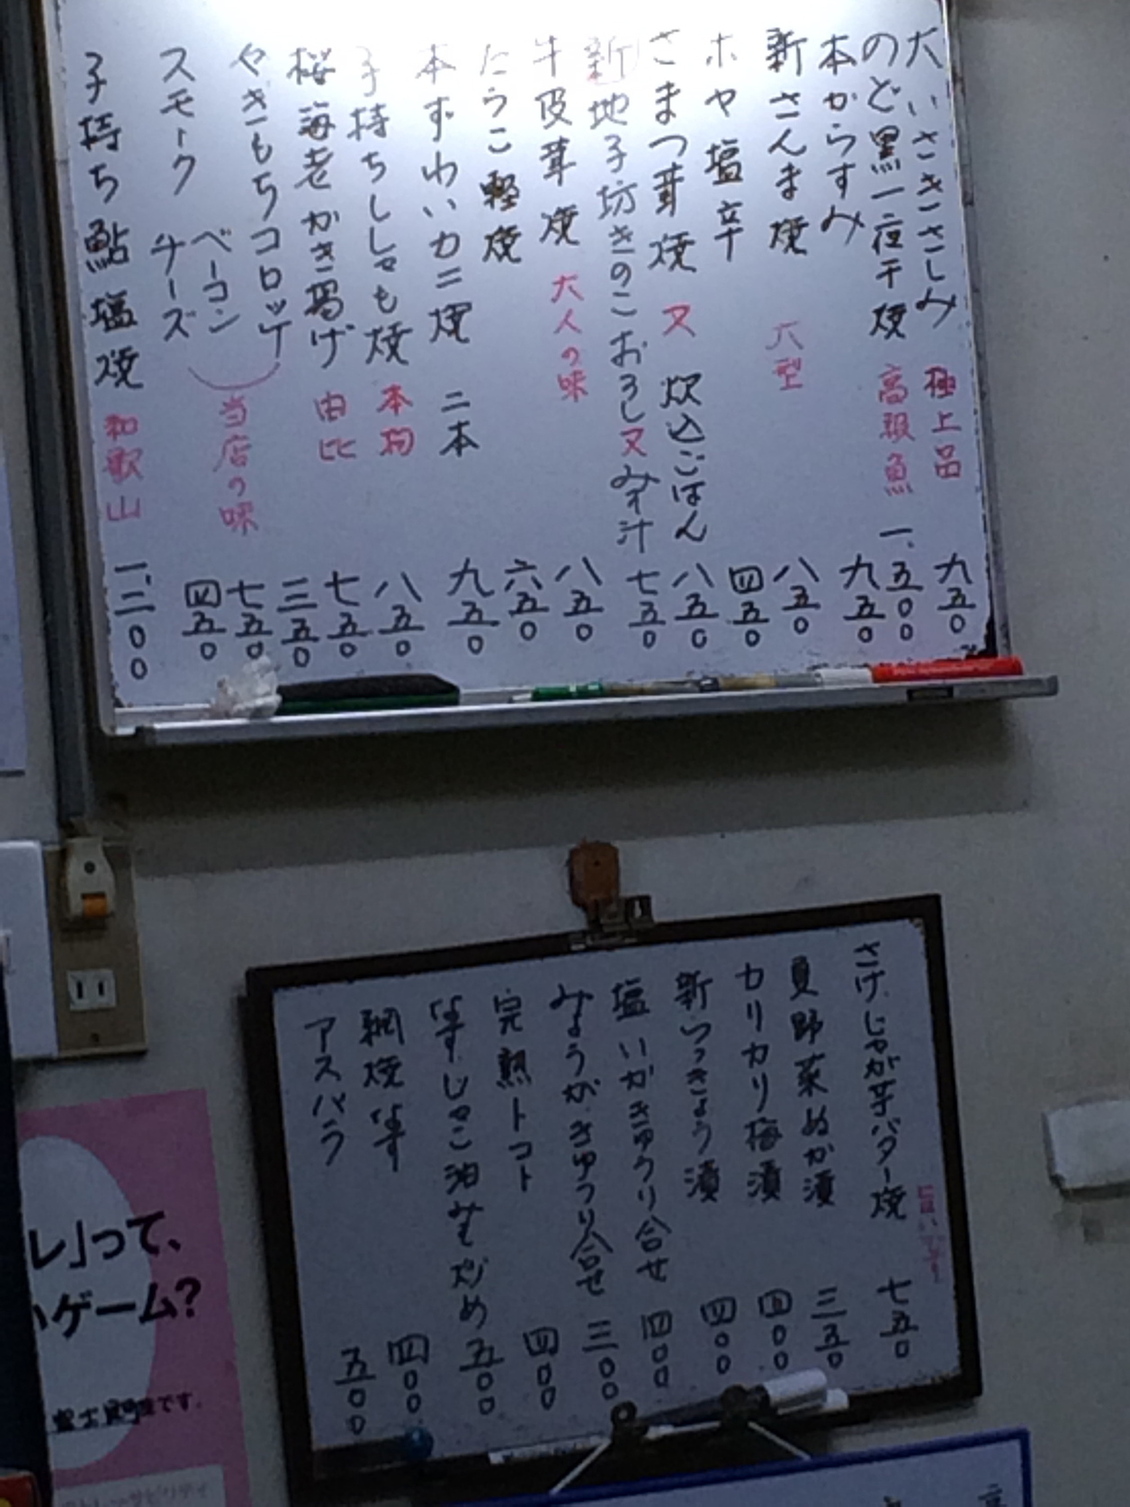 大いさきさしみ 極上品 九五〇
のど黒一夜干焼 高級魚 一、五〇〇
本からすみ 九五〇
新さんま焼 大型 八五〇
ホヤ塩辛 四五〇
さまつ茸焼 又 炊込ごはん 八五〇
新地子坊きのこおろし又みそ汁 七五〇
牛皮茸焼 大人の味 八五〇
たらこ軽焼 六五〇
本ずわいカニ焼 二本 九五〇
子持ちししゃも焼 本物 八五〇
桜海老かき揚げ 由比 七五〇
やきもちコロッケ 三五〇
ベーコン 七五〇
スモークチーズ 四五〇
当店の味
子持ち鮎塩焼 和歌山 一、二〇〇
さけ、じゃが芋バター焼 七五〇
夏野菜ぬか漬 三五〇
カリカリ梅漬 四〇〇
新らっきょう漬 四〇〇
塩いかきゅうり合せ 四〇〇
みょうがきゅうり合せ 三〇〇
完熟トマト 四〇〇
なすじゃこ油みそ炒め 五〇〇
網焼なす 四〇〇
アスパラ 五〇〇
レ」って、
ゲーム?
です。